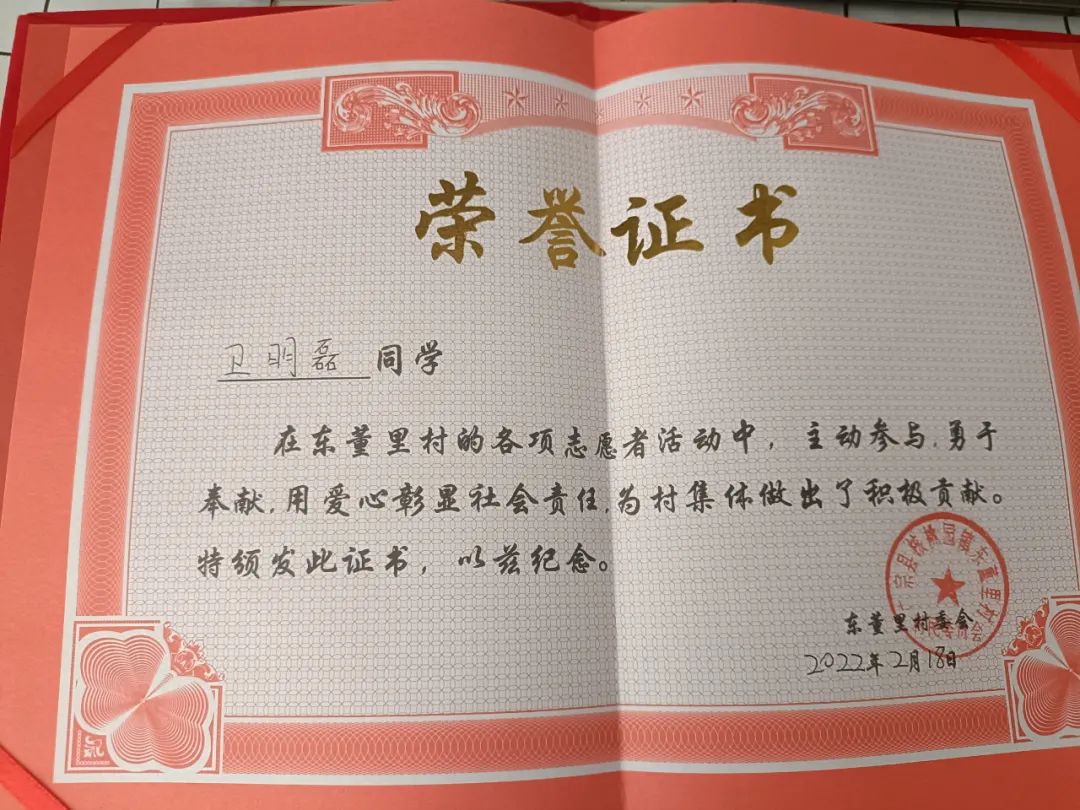 荣誉证书
卫明磊 同学
在东董里村的各项志愿者活动中，主动参与,勇于
奉献,用爱心彰显社会责任,为村集体做出了积极贡献。
特颁发此证书，以兹纪念。
宗县核桃园镇东董里村
民委员会
东董里村委会
2022年2月18日